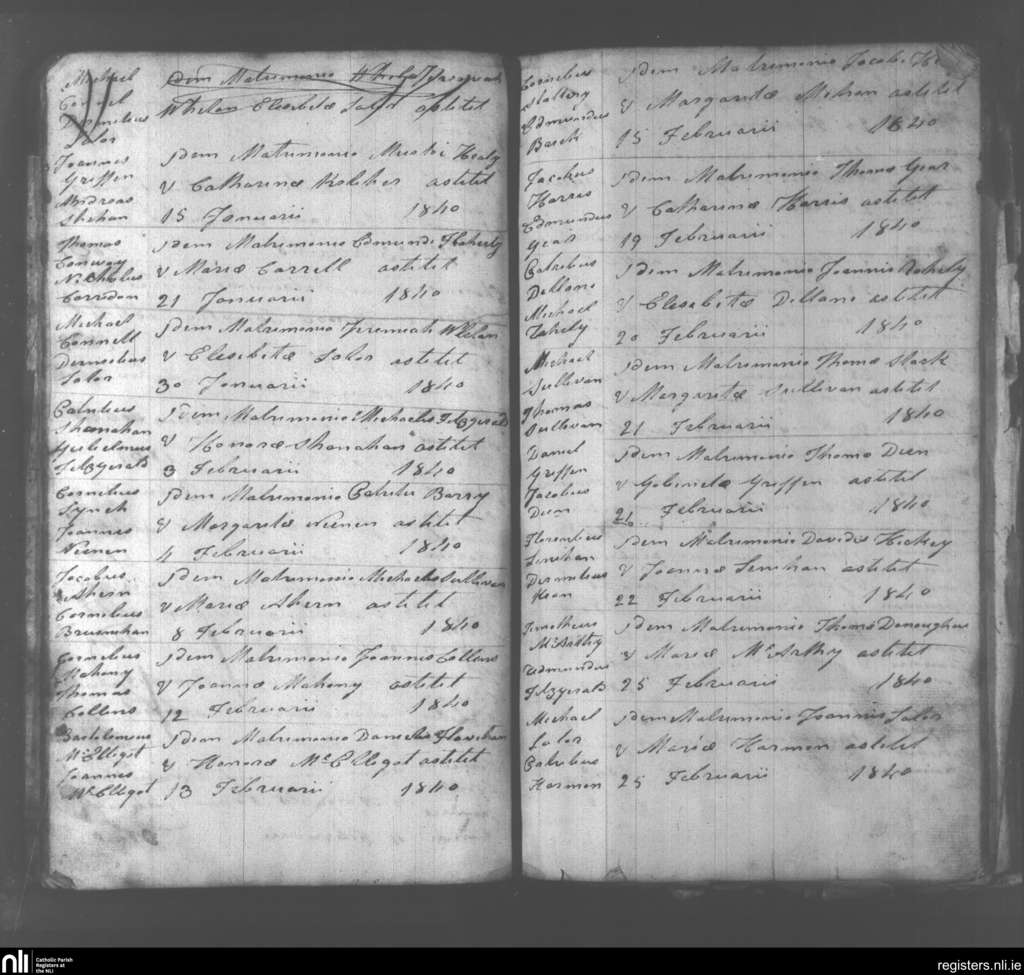 Michael
Connel
Dermitius
Lalor
Idem Matrimonio
Whelan Elisabetæ Lalor astitit
Joannes
Griffen
Andreas
Shehan
Idem Matrimonio Healy
& Catharinæ Kelcher astitit
15 Januarii 1840
Thomas
Conway
Nicholus
Corridon
Idem Matrimonio Edmundi Flaherty
& Mariæ Carrell astitit
21 Januarii 1840
Michael
Connell
Dermitius
Lalor
Idem Matrimonio Jeremiah Whelan
& Elisabetæ Lalor astitit
30 Januarii 1840
Patritius
Shanahan
Gulielmus
Fitzgerald
Idem Matrimonio Michaelis Fitzgerald
& Honoræ Shanahan astitit
3 Februarii 1840
Cornelius
Lynch
Joannes
Neenen
Idem Matrimonio Patritii Barry
& Margaritæ Neenen astitit
4 Februarii 1840
Jacobus
Ahern
Cornelius
Bruenehan
Idem Matrimonio Michaelis Sullivan
& Mariæ Ahern astitit
8 Februarii 1840
Cornelius
Mahony
Thomas
Collens
Idem Matrimonio Joannis Collens
& Joannæ Mahony astitit
12 Februarii 1840
Bartolomeus
McElligot
Joannes
McElligot
Idem Matrimonio Danielis
& Honoræ McElligot astitit
13 Februarii 1840
Cornelius
Slattery
Edmundus
Idem Matrimonio Jacobi
& Margaritæ astitit
15 Februarii 1840
Jacobus
Harris
Edmundus
Gear
Idem Matrimonio Thomæ Gear
& Catharinæ Harris astitit
19 Februarii 1840
Patritius
Dellane
Michael
Fahely
Idem Matrimonio Joannis Fahely
& Elisabetæ Dellane astitit
20 Februarii 1840
Michael
Sullivan
Thomas
Sullivan
Idem Matrimonio Thomæ Stack
& Margaritæ Sullivan astitit
21 Februarii 1840
Daniel
Griffen
Jacobus
Deen
Idem Matrimonio Thomæ Deen
& Gobinetæ Griffen astitit
21 Februarii 1840
Florentius
Linehan
Dermitius
Idem Matrimonio Davidis Hickey
& Joannæ Linehan astitit
22 Februarii 1840
Timotheus
McArthy
Edmundus
Fitzgerald
Idem Matrimonio Thomæ Donoughue
& Mariæ McArthy astitit
25 Februarii 1840
Michael
Lalor
Patritius
Harmon
Idem Matrimonio Joannis Lalor
& Mariæ Harmon astitit
25 Februarii 1840
nli
Catholic Parish
Registers at
the NLI
registers.nli.ie